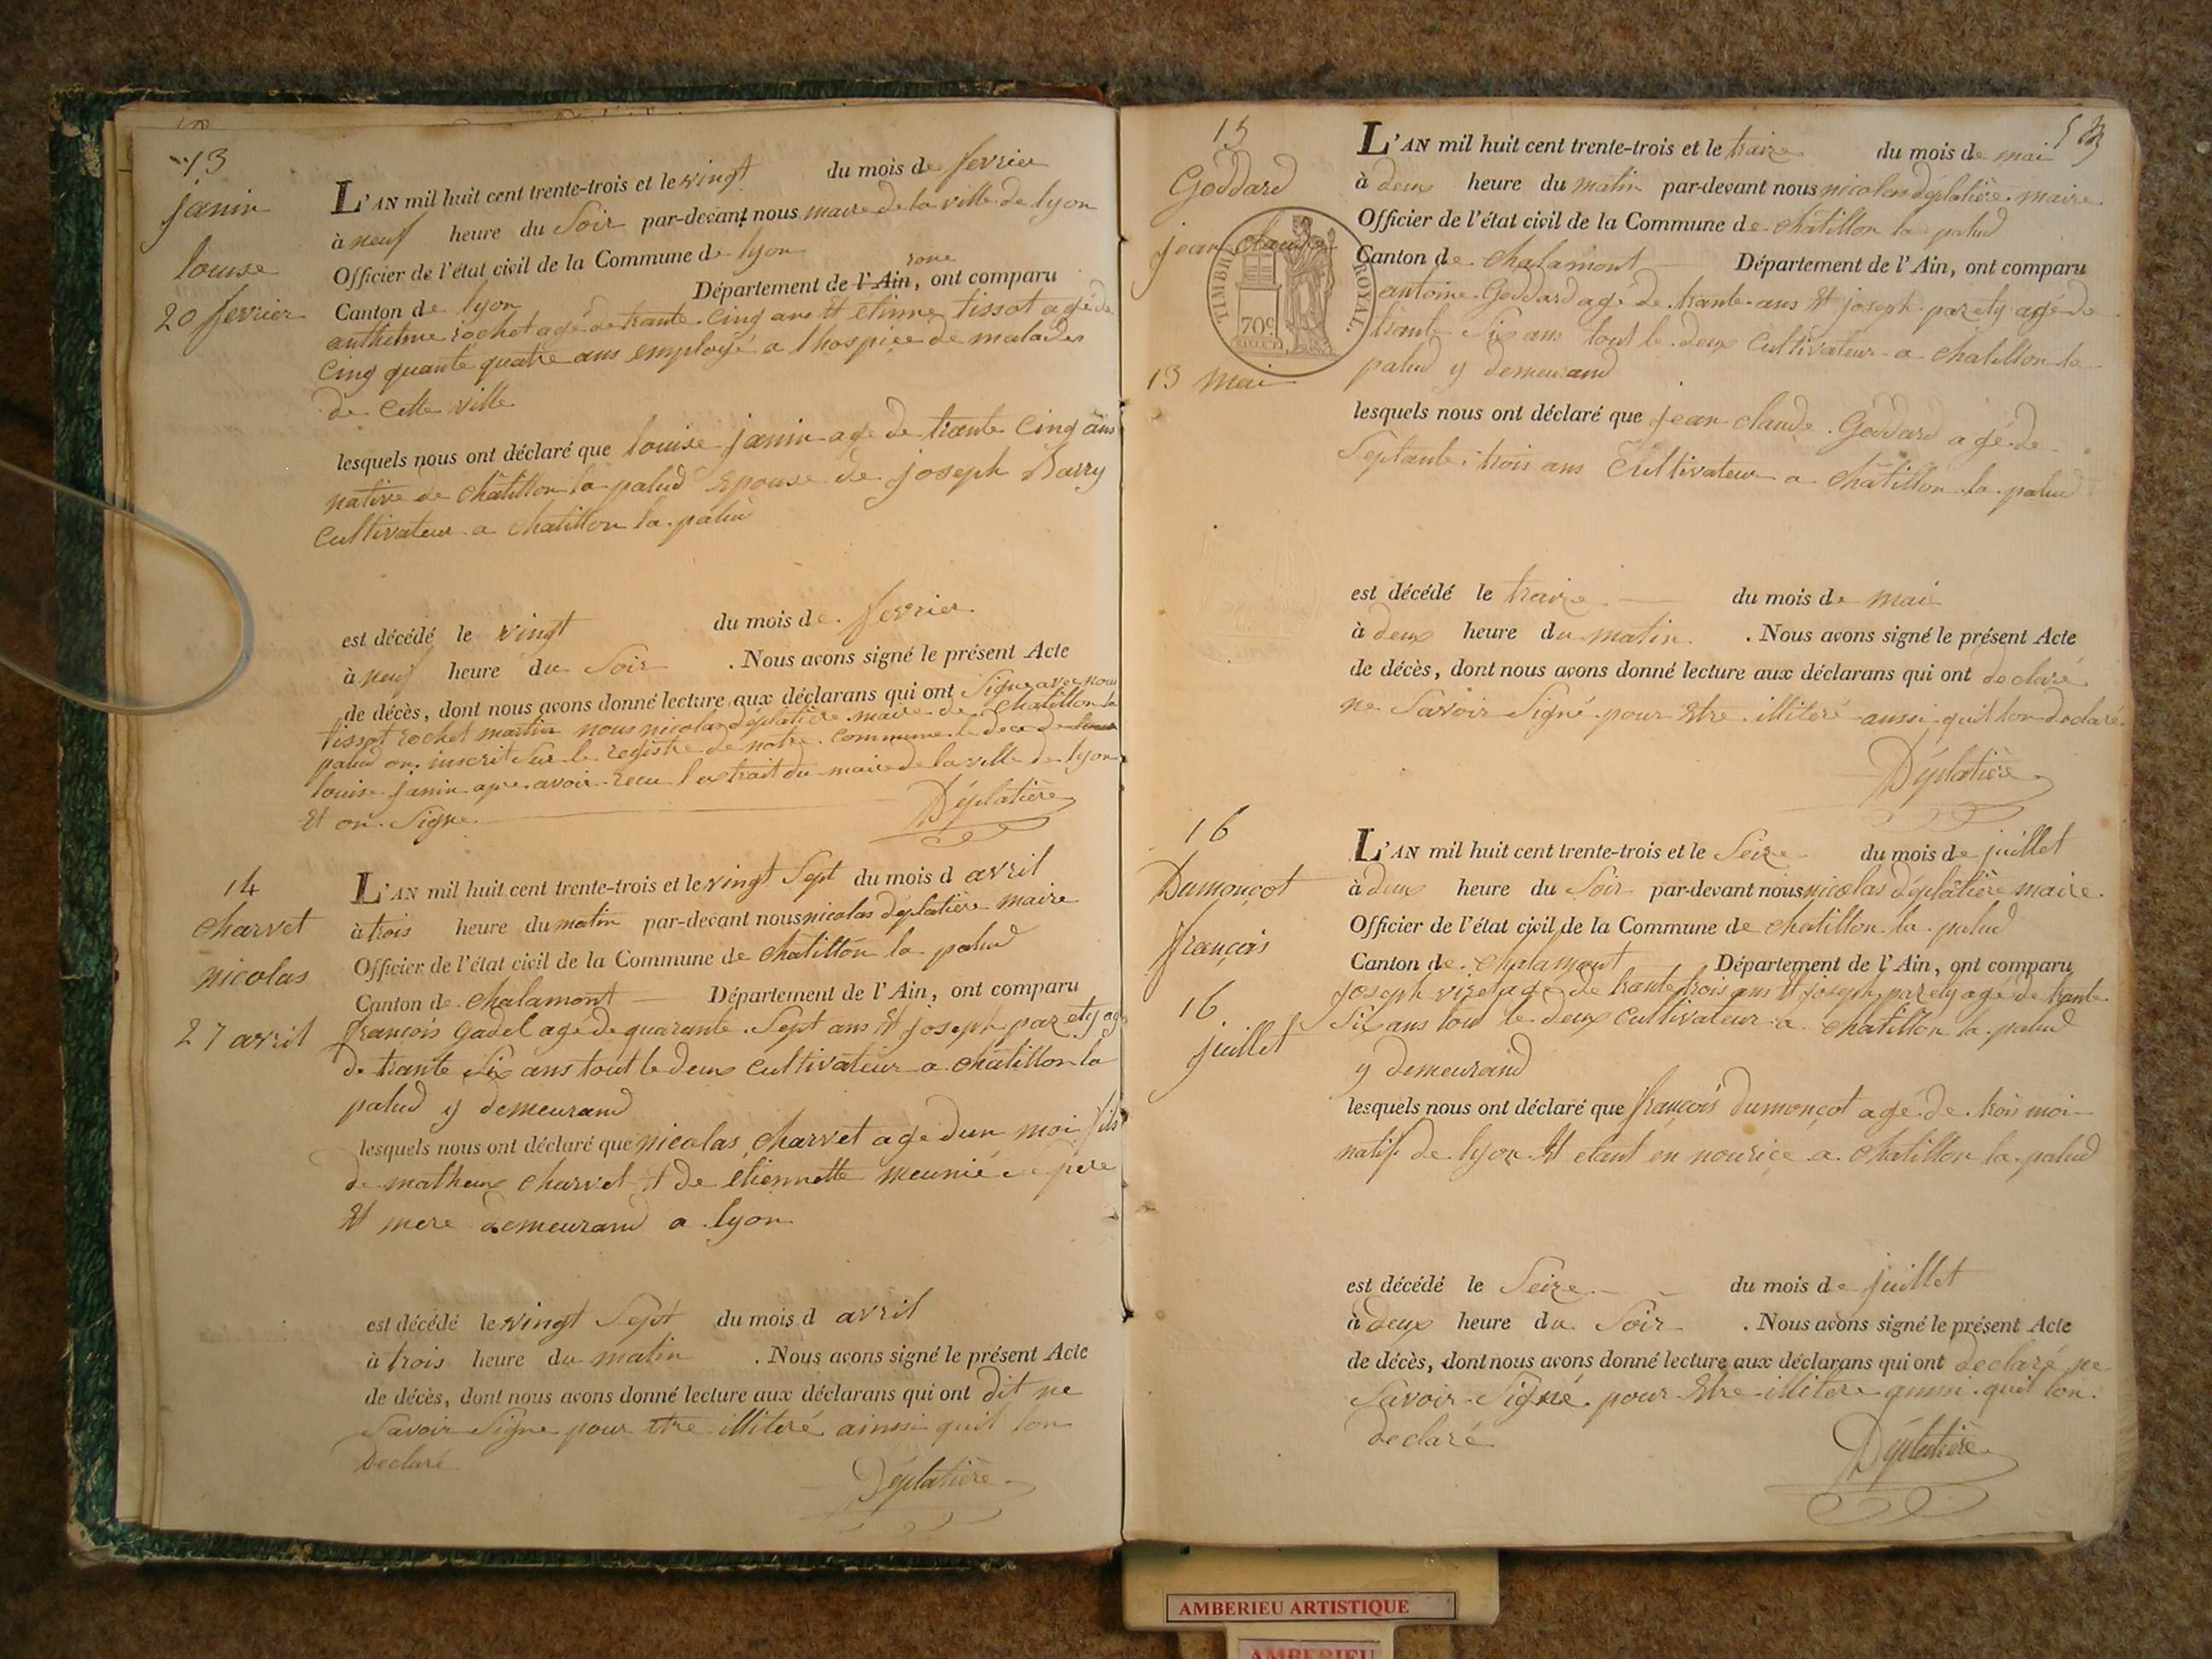 13
janin
louise
20 fevrier
L'AN mil huit cent trente-trois et le vingt du mois de fevrier
à neuf heure du Soir par-devant nous maire de la ville de lyon
Officier de l'état civil de la Commune de lyon
rone
Canton de lyon Département de l'Ain, ont comparu
anthelme rochet agé de trante cinq ans Et etinne tissot agé de
cinq quante quatre ans employé a lhospice de malades
de cette ville
lesquels nous ont déclaré que louise janin age de trante cinq ans
native de châtillon la palud Epouse de joseph Barry
cultivateur a chatillon la palud
est décédé le vingt du mois de fevrier
à neuf heure du Soir . Nous avons signé le présent Acte
de décès, dont nous avons donné lecture aux déclarans qui ont Signe avec nous
tissot rochet martin nous nicolas déplatière maire de chatillon la
palud on inscrit Sur le registre de notre commune le dece de
louise janin apre avoir recu l extrait du maire de la ville de lyon
Et on Signe
Déplatière
14
charvet
nicolas
27 avril
L'AN mil huit cent trente-trois et le vingt Sept du mois d avril
à trois heure du matin par-devant nous nicolas déplatière maire
Officier de l'état civil de la Commune de châtillon la palud
Canton de chalamont Département de l'Ain, ont comparu
françois gadel agé de quarante Sept ans Et joseph parety agé
de trante Six ans tout le deux cultivateur a chatillon la
palud y demeurand
lesquels nous ont déclaré que nicolas charvet age dun moi fils
de matheux charvet Et de etiennette meunié père
Et mere demeurand a lyon
est décédé le vingt Sept du mois d avril
à trois heure du matin . Nous avons signé le présent Acte
de décès, dont nous avons donné lecture aux déclarans qui ont dit ne
Savoir Signe pour etre illiteré ainssi quil lon
Declaré
Déplatière
15
Goddard
jean claude
13 mai
TIMBRE ROYAL
70c
L'AN mil huit cent trente-trois et le traize du mois de mai
à deux heure du matin par-devant nous nicolas déplatière maire
Officier de l'état civil de la Commune de châtillon la palud
Canton de chalamont Département de l'Ain, ont comparu
antoine Goddard agé de trante ans Et joseph parety agé de
trante Six ans tout le deux cultivateur a chatillon la
palud y demeurand
lesquels nous ont déclaré que jean claude Goddard agé de
Septante trois ans Cultivateur a châtillon la palud
est décédé le traize du mois de mai
à deux heure du matin . Nous avons signé le présent Acte
de décès, dont nous avons donné lecture aux déclarans qui ont declaré
ne Savoir Signé pour Etre illiteré aussi quil lon declaré
Déplatière
16
Dumonçot
françois
16
juillet
L'AN mil huit cent trente-trois et le Seize du mois de juillet
à deux heure du Soir par-devant nous nicolas déplatière maire
Officier de l'état civil de la Commune de chatillon la palud
Canton de chalamont Département de l'Ain, ont comparu
joseph viret agé de trante trois ans Et joseph parety agé de trante
Six ans tout le deux cultivateur a chatillon la palud
y demeurand
lesquels nous ont déclaré que françois dumonçot agé de trois moi
natif de lyon Et etant en nourice a chatillon la palud
est décédé le Seize du mois de juillet
à deux heure du Soir . Nous avons signé le présent Acte
de décès, dont nous avons donné lecture aux déclarans qui ont declaré ne
Savoir Signé pour Etre illitere aussi quil lon
declaré
Déplatière
AMBERIEU ARTISTIQUE
AMBERIEU